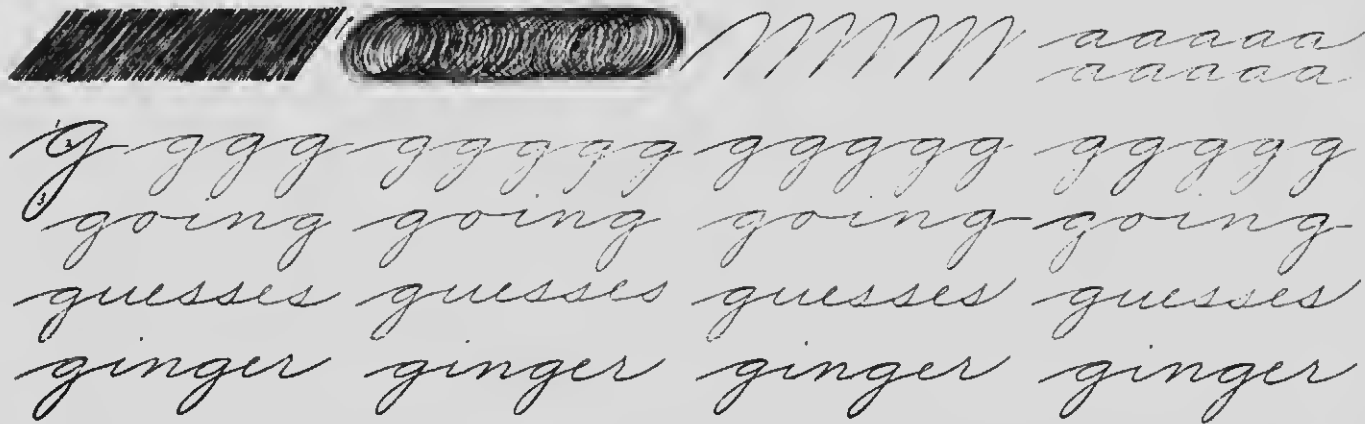 aaaaa
aaaaa
g ggg ggggg ggggg ggggg
going going going going
guesses guesses guesses guesses
ginger ginger ginger ginger